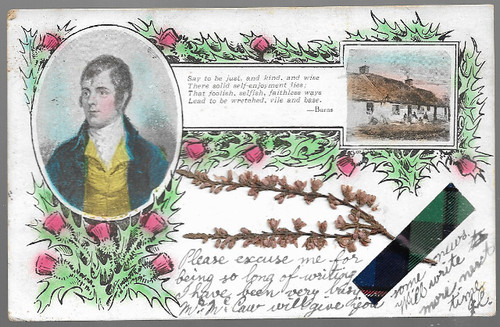 Say to be just, and kind, and wise
There solid self-enjoyment lies;
That foolish, selfish, faithless ways
Lead to be wretched, vile and base.
—Burns
Please excuse me for
being so long of writing
I have been very busy
Mr McCaw will give you
some news.
Will write
more next
time